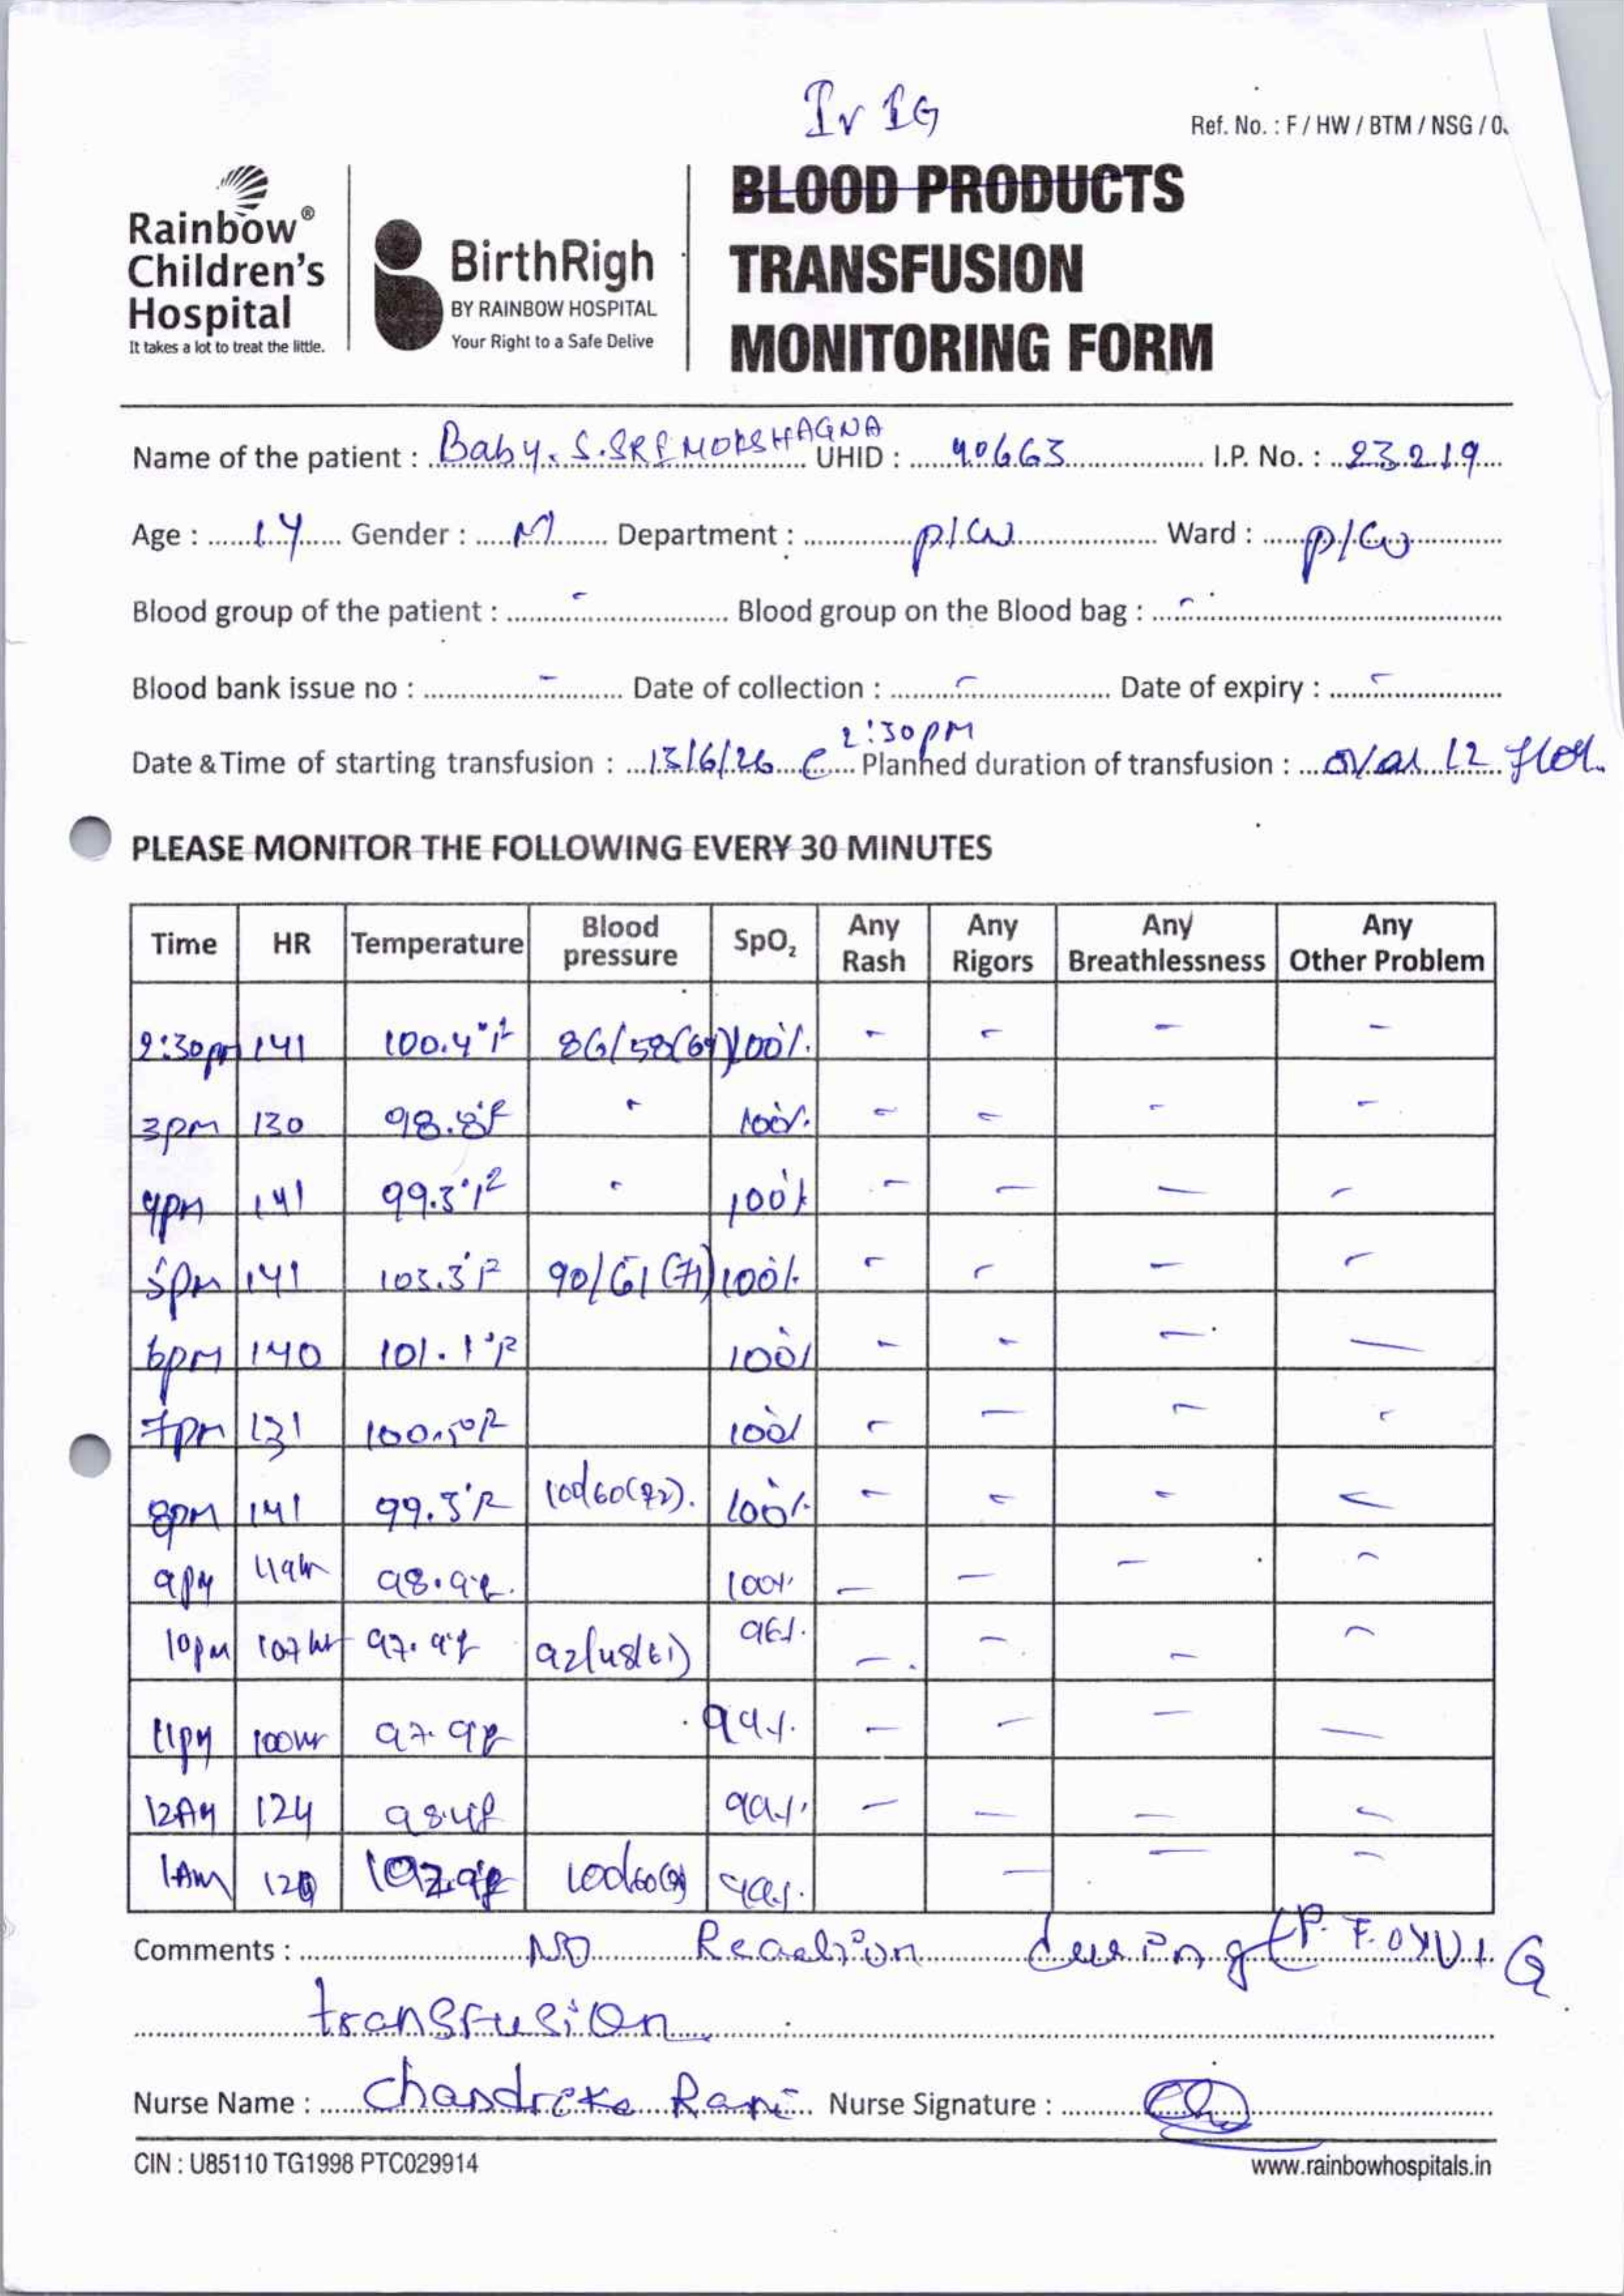 Iv IG
Ref. No. : F / HW / BTM / NSG / 0
Rainbow®
Children's
Hospital
It takes a lot to treat the little.
BirthRigh
BY RAINBOW HOSPITAL
Your Right to a Safe Delive
BLOOD PRODUCTS
TRANSFUSION
MONITORING FORM
Name of the patient : Baby. S. SRI MOKSHAGNA UHID : 40663 I.P. No. : 23219
Age : 1Y Gender : M Department : P/W Ward : P/W
Blood group of the patient : - Blood group on the Blood bag : -
Blood bank issue no : - Date of collection : - Date of expiry : -
Date & Time of starting transfusion : 13/6/26 @ 2:30pm Planned duration of transfusion : over 12
PLEASE MONITOR THE FOLLOWING EVERY 30 MINUTES
Time HR Temperature Blood pressure SpO₂ Any Rash Any Rigors Any Breathlessness Any Other Problem
2:30pm 141 100.4°F 86/58(69) 100% - - - -
3pm 130 98.8°F - 100% - - - -
4pm 141 99.3°F - 100% - - - -
5pm 141 103.3°F 90/61(71) 100% - - - -
6pm 140 101.1°F 100% - - - -
7pm 131 100.5°F 100% - - - -
8pm 141 99.3°F 100/60(72). 100% - - - -
9pm 119 98.9°F. 100% - - - -
10pm 107 97.9°F 92/48(61) 96%. - - - -
11pm 100 97.9°F 99%. - - - -
12AM 124 98.4F 99%. - - - -
1AM 100/60 99%. - - -
Comments : NO Reaction during IVIG
transfusion
Nurse Name : Chandrika Rani Nurse Signature :
CIN : U85110 TG1998 PTC029914
www.rainbowhospitals.in